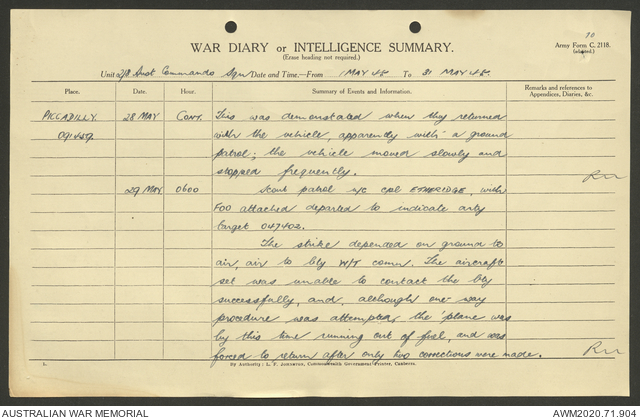 70
WAR DIARY or INTELLIGENCE SUMMARY.
Army Form C. 2118.
(Erase heading not required.)
(adapted.)
Unit 2/8 Aust Commando Sqn Date and Time.—From 1 MAY 45 To 31 MAY 45.
Place. Date. Hour. Summary of Events and Information. Remarks and references to Appendices, Diaries, &c.
PICCADILLY. 28 MAY CONT. This was demonstrated when they returned
091459. with the vehicle, apparently with a ground
patrol; the vehicle moved slowly and
stopped frequently.
29 MAY 0600 Scout patrol i/c cpl ETHERIDGE, with
FOO attached departed to indicate arty
target 047402.
The strike depended on ground to
air, air to bty W/T comn. The aircraft
set was unable to contact the bty
successfully, and, although one-way
procedure was attempted, the 'plane was
by this time running out of fuel, and was
forced to return after only two corrections were made.
By Authority: L. F. JOHNSTON, Commonwealth Government Printer, Canberra.
AUSTRALIAN WAR MEMORIAL
AWM2020.71.904